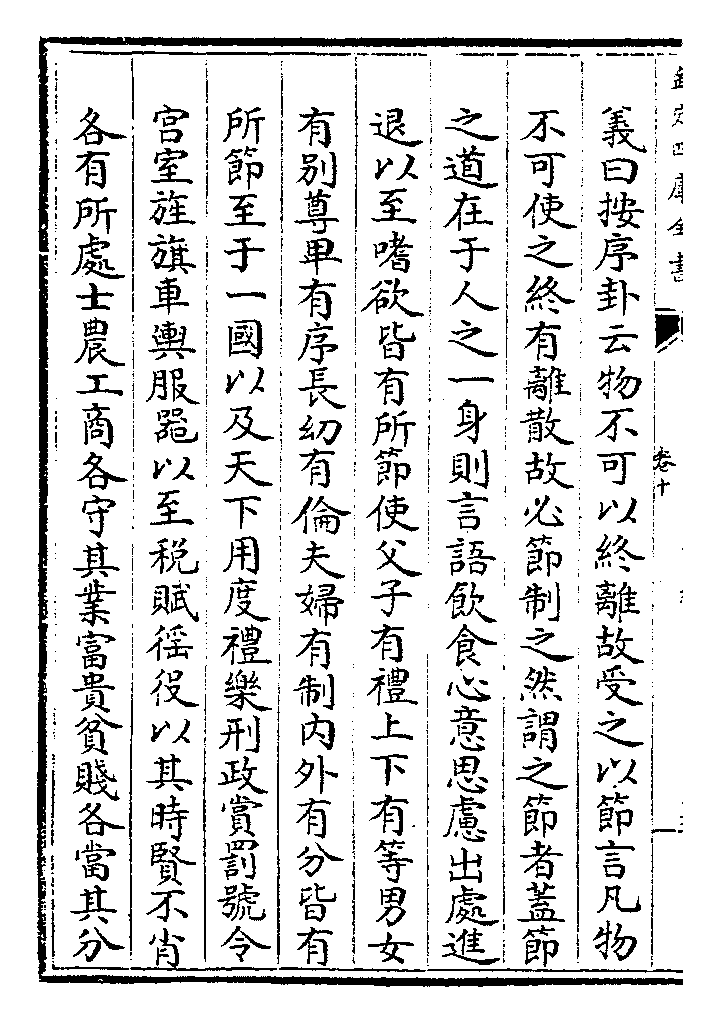 欽定四庫全書
卷十
義曰按序卦云物不可以終離故受之以節言凡物
不可使之終有離散故必節制之然謂之節者蓋節
之道在于人之一身則言語飲食心意思慮出處進
退以至嗜欲皆有所節使父子有禮上下有等男女
有别尊卑有序長幼有倫夫婦有制内外有分皆有
所節至于一國以及天下用度禮樂刑政賞罰號令
宫室旌旗車輿服器以至税賦徭役以其時賢不肖
各有所處士農工商各守其業富貴貧賤各當其分